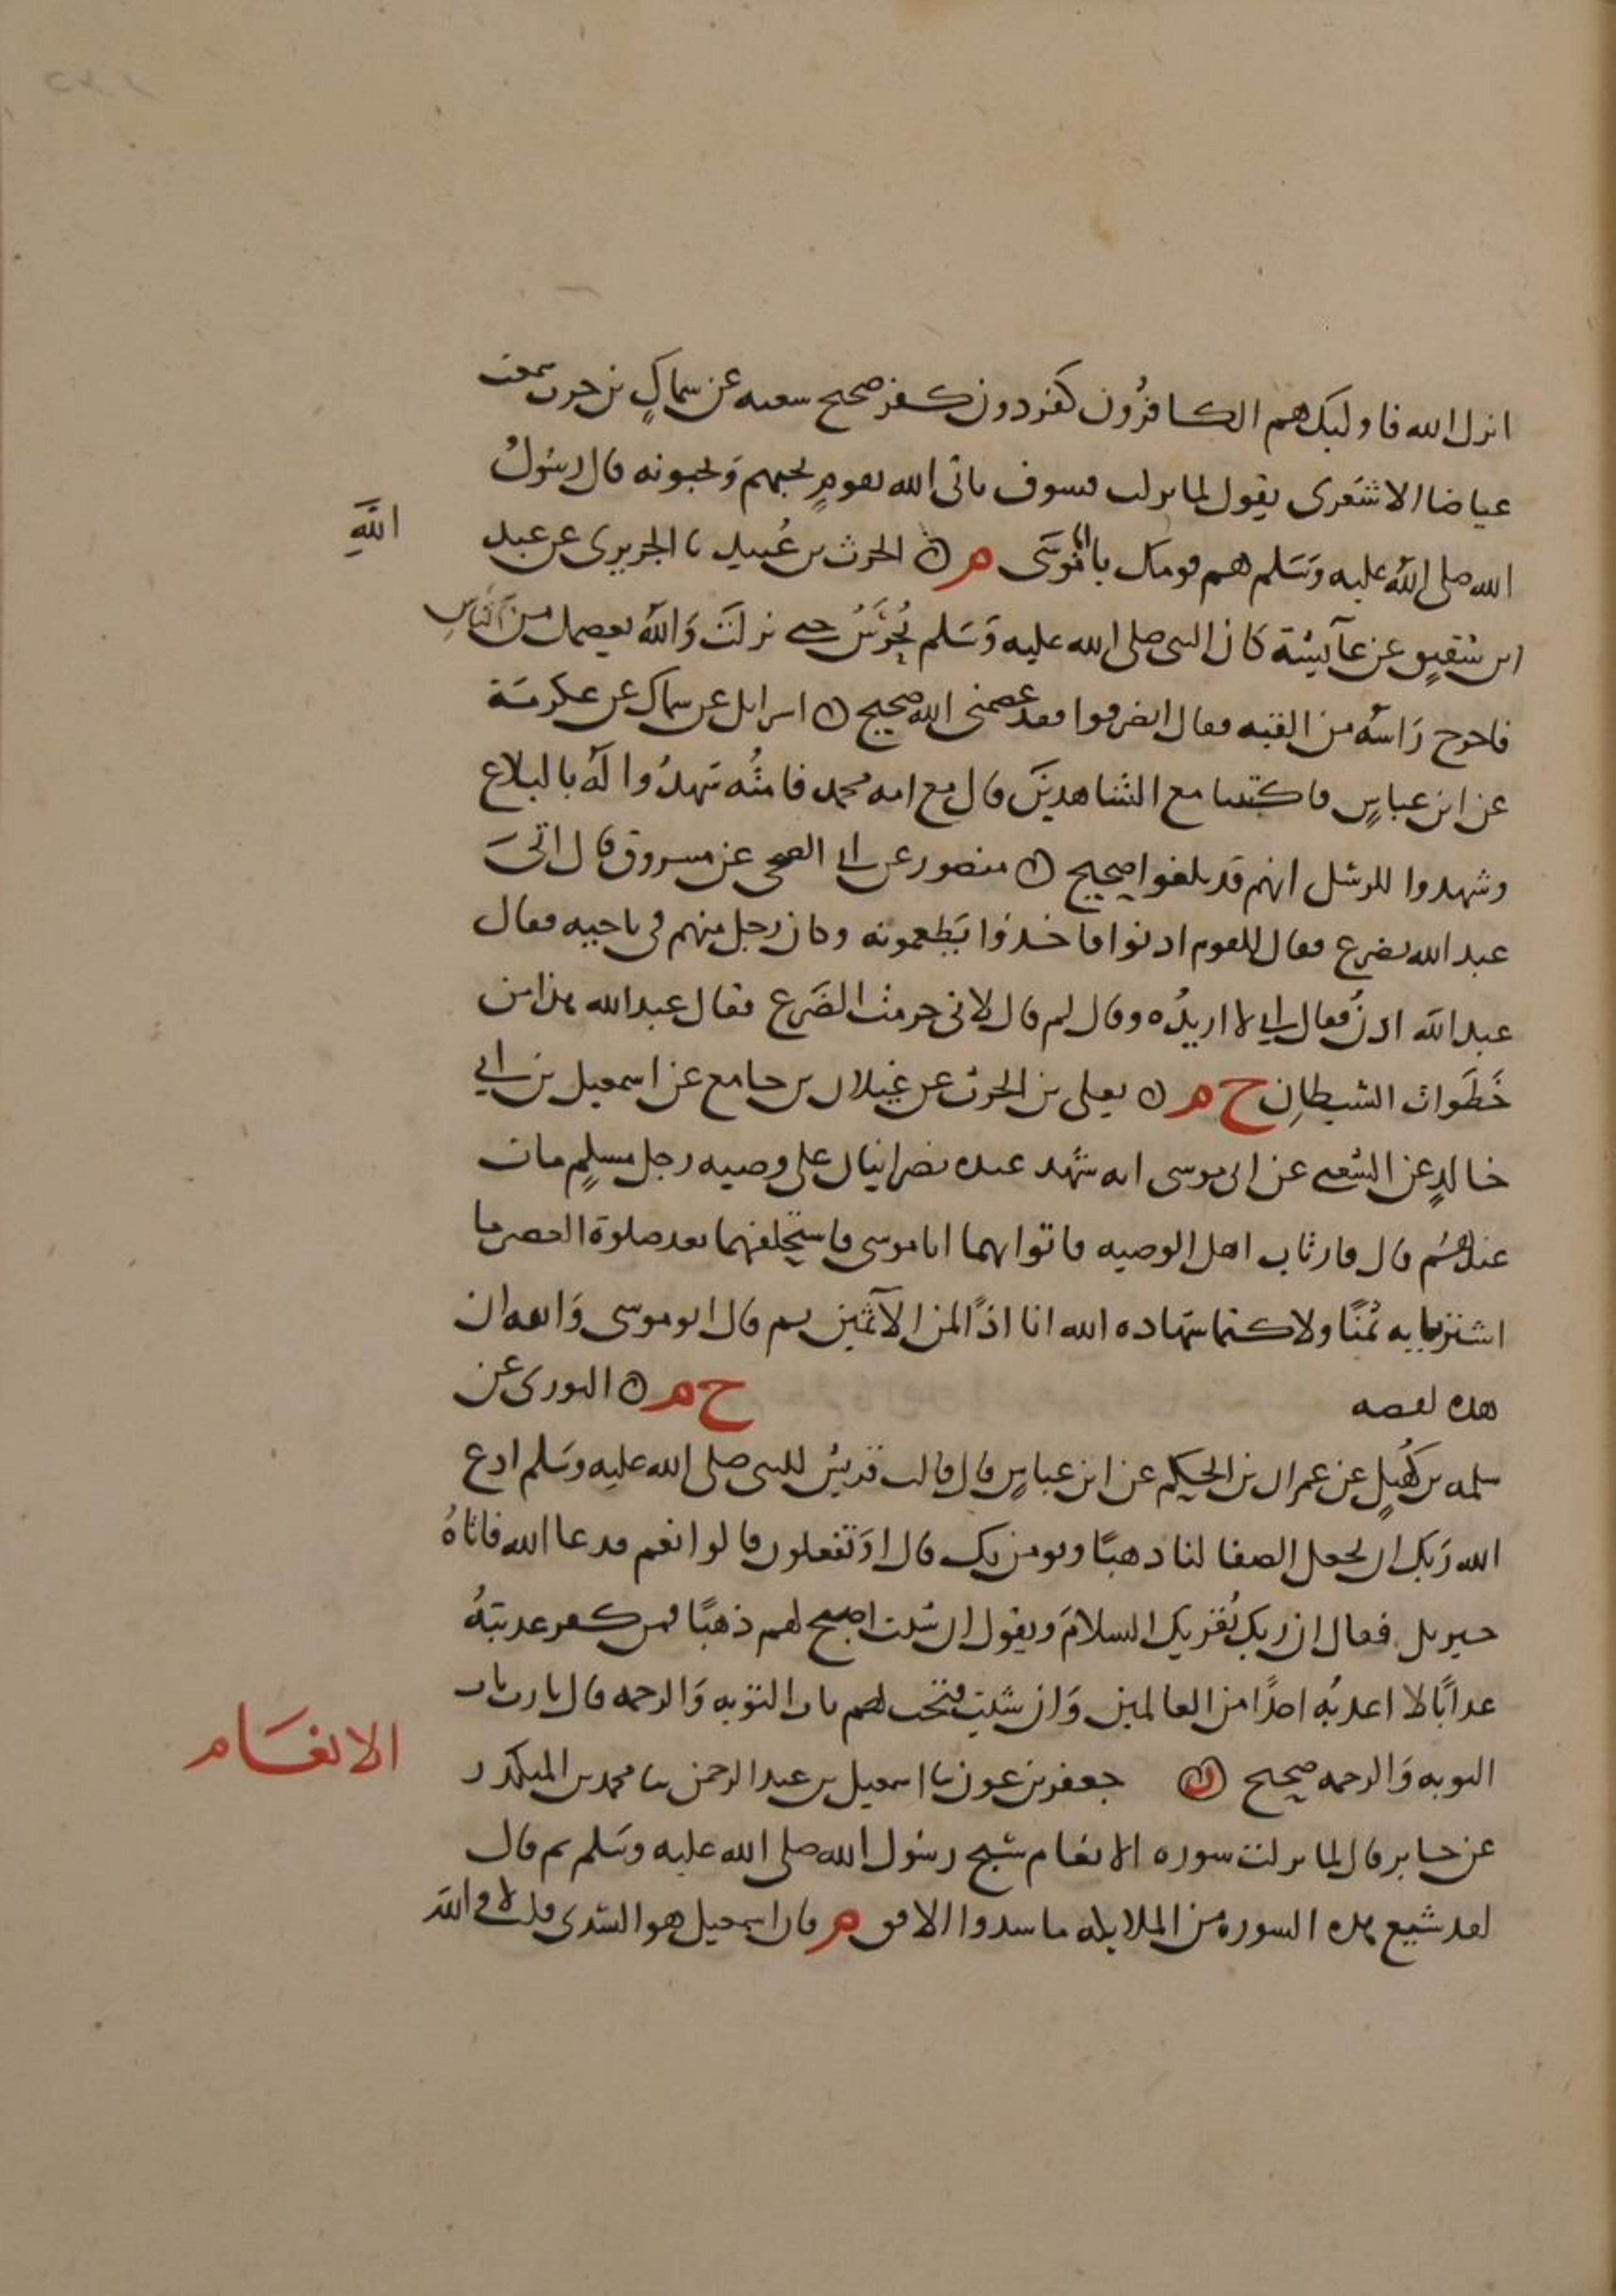 انزل الله فاوليك هم الكافرون كفر دون كفر صحيح شعبه عن سماك بن حرب سمعت
عياضا الاشعرى يقول لما نزلت فسوف ياتى الله بقوم يحبهم ويحبونه قال رسول
الله صلى الله عليه وسلم هم قومك يا ابا موسى م ه الحرث بن عبيد نا الجريرى عن عبد
الله
ابن شقيق عن عآيشة كان النبى صلى الله عليه وسلم يحرس حتى نزلت والله يعصمك من الناس
فاخرج راسه من القبه فقال انصرفوا فقد عصمنى الله صحيح ه اسرايل عن سماك عن عكرمة
عن ابن عباس فاكتبنا مع الشاهدين قال مع امه محمد فامته شهدوا له بالبلاغ
وشهدوا للرسل انهم قد بلغوا صحيح ه منصور عن ابى الضحى عن مسروق قال اتى
عبد الله بضرع فقال للقوم ادنوا فاخذوا يطعمونه وكان رجل منهم فى ناحيه فقال
عبد الله ادن فقال انى لا اريده وقال لم قال لانى حرمت الضرع فقال عبد الله هذا من
خطوات الشيطان خ م ه يعلى بن الحرث عن غيلان بن جامع عن اسمعيل بن ابى
خالد عن الشعبى عن ابى موسى انه شهد عنده نصرانيان على وصيه رجل مسلم مات
عندهم قال فارتاب اهل الوصيه فاتوا بهما ابا موسى فاستحلفهما بعد صلوة العصر ما
اشترينا به ثمنا ولا كتمنا شهاده الله انا اذا لمن الآثمين ثم قال ابو موسى والله ان
هذه لقصه خ م ه الثورى عن
سلمه بن كهيل عن عمران بن الحكم عن ابن عباس قال قالت قريش للنبى صلى الله عليه وسلم ادع
الله ربك ان يجعل الصفا لنا ذهبا ونومن بك قال اوتفعلون قالوا نعم فدعا الله فاتاه
جبريل فقال ان ربك يقريك السلام ويقول ان شئت اصبح لهم ذهبا فمن كفر عذبته
عذابا لا اعذبه احدا من العالمين وان شئت فتحت لهم باب التوبه والرحمه قال يا رب باب
التوبه والرحمه صحيح ه جعفر بن عون نا اسمعيل بن عبد الرحمن نا محمد بن المنكدر
الانعام
عن جابر قال لما نزلت سوره الانعام سبح رسول الله صلى الله عليه وسلم ثم قال
لقد شيع هذه السوره من الملايكه ما سدوا الافق م قال اسمعيل هو السدى قلت لا والله